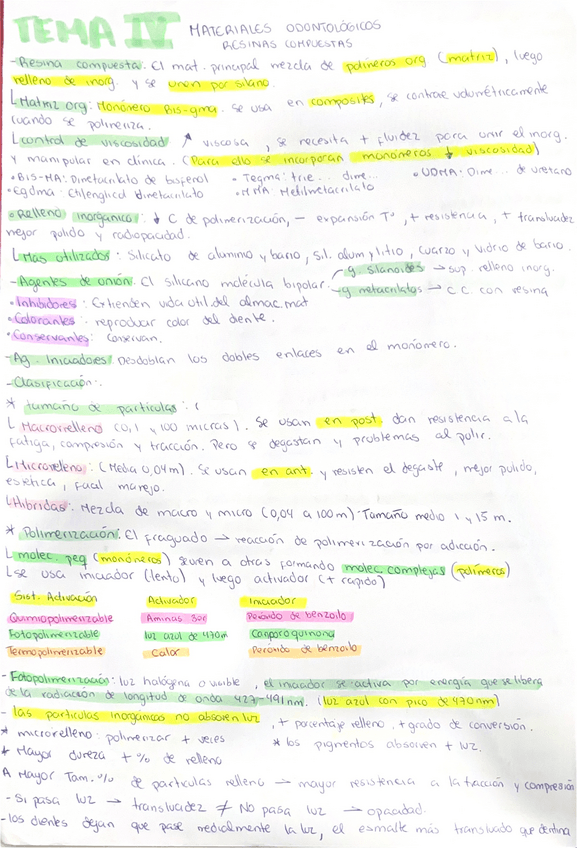 TEMA IV MATERIALES ODONTOLÓGICOS
RESINAS COMPUESTAS
-Resina compuesta: El mat. principal mezcla de polineros org (matriz), luego
relleno de inorg. y se unen por silano.
Matriz org: Monónero Bis-gma. Se usa en composites, se contrae volumétricamente
cuando se polimeriza.
control de viscosidad ↗ viscosa, se necesita + fluidez para unir el inorg.
y manipular en clínica. (Para ello se incorporan monóneros ↓ viscosidad)
• BIS-MA: Dimetacrilato de bisferol • Tegma: trie... dime... • UDMA: Dime... de uretano
• Egdma: Etilenglicol dimetacrilato • MMA: Metilmetacrilato
• Relleno inorgánico: ↓ C de polimerización, - expansión Tª, + resistencia, + translucidez
mejor pulido y radiopacidad.
Más utilizados: Silicato de alumino y bario, sil. alum y litio, cuarzo y vidrio de bario.
-Agentes de unión: El silicano molécula bipolar. g. silanoides → sup. relleno inorg.
g. metacrilatos → CC. con resina
• Inhibidores: Extienden vida util del almac. mat
• Colorantes: reproducir color del diente.
• Conservantes: Conservan.
-Ag. Iniciadores: Desdoblan los dobles enlaces en el monómero.
-Clasificación:
* tamaño de partículas:
Macrorrelleno (0,1 y 100 micras). Se usan en post. dan resistencia a la
fatiga, compresión y tracción. Pero se degastan y problemas al pulir.
Microrelleno: (Meba 0,04m). Se usan en ant. y resisten el degaste, mejor pulido,
estética, facil manejo.
Híbridas: Mezcla de macro y micro (0,04 a 100m). Tamaño medio 1 y 15 m.
* Polimerización: El fraguado → reacción de polimerización por adicción.
molec. peq (monóneros) se unen a otras formando molec complejas (polímeros)
se usa iniciador (lento) y luego activador (+ rapido)
Sist. Activación Activador Iniciador
Quimiopolimerizable Aminas Peróxido de benzoilo
Fotopolimerizable luz azul de 470m Canporoquinona
Termopolimerizable Calor Peróxido de benzoilo
-Fotopolimerización: luz halógena o visible, el iniciador se activa por energía que se libera
de la radiación de longitud de onda 427-491 nm. (luz azul con pico de 470nm)
- las partículas inorgánicas no absoren luz, + porcentaje relleno, + grado de conversión.
* microrelleno: polimerizar + veces * los pigmentos absorven + luz.
* Mayor dureza + % de relleno
Mayor Tam. % de particulas relleno → mayor resistencia a la tracción y compresión
- Si pasa luz → translucidez ≠ No pasa luz → opacidad.
-los dientes dejan que pase medialmente la luz, el esmalte más translucido que dentina